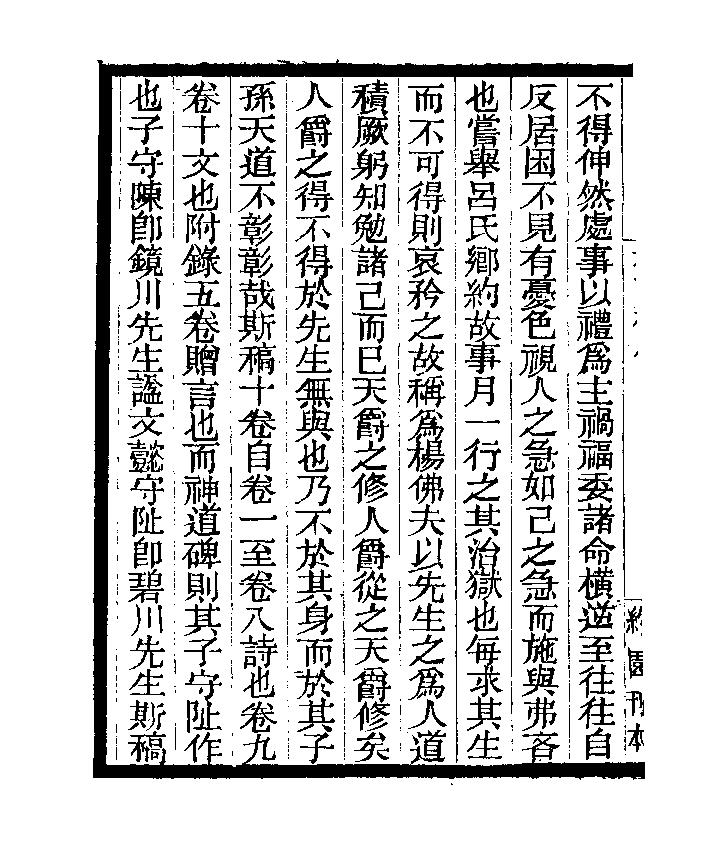 不得伸然處事以禮爲主禍福委諸命橫逆至往往自
反居困不見有憂色視人之急如己之急而施與弗吝
也嘗舉呂氏鄉約故事月一行之其治獄也每求其生
而不可得則哀矜之故稱爲楊佛夫以先生之爲人道
積厥躬知勉諸己而巳天爵之修人爵從之天爵修矣
人爵之得不得於先生無與也乃不於其身而於其子
孫天道不彰彰哉斯稿十卷自卷一至卷八詩也卷九
卷十文也附錄五卷贈言也而神道碑則其子守阯作
也子守陳卽鏡川先生諡文懿守阯卽碧川先生斯稿
約園刊本